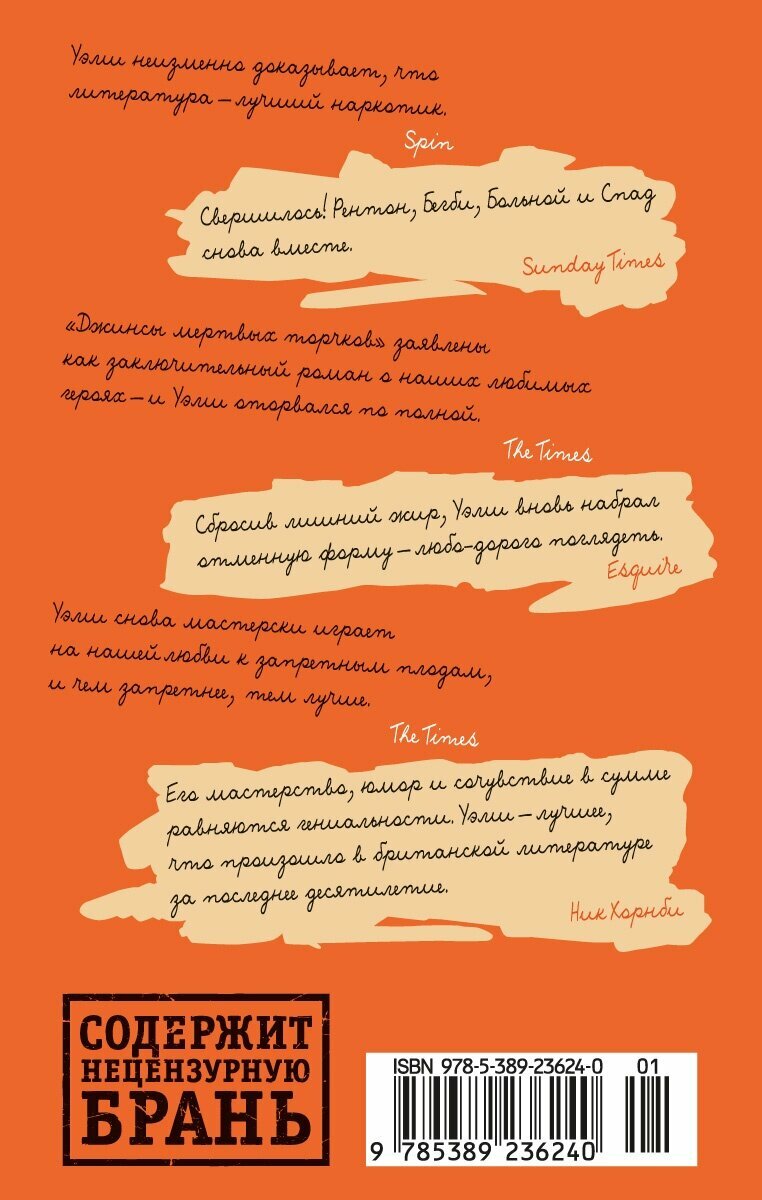 Уэлш неизменно доказывает, что
литература – лучший наркотик.
Spin
Свершилось! Рентон, Бегби, Больной и Спад
снова вместе.
Sunday Times
«Джинсы мертвых торчков» заявлены
как заключительный роман о наших любимых
героях – и Уэлш оторвался по полной.
The Times
Сбросив лишний жир, Уэлш вновь набрал
отменную форму – любо-дорого поглядеть.
Esquire
Уэлш снова мастерски играет
на нашей любви к запретным плодам,
и чем запретнее, тем лучше.
The Times
Его мастерство, юмор и сочувствие в сумме
равняются гениальности. Уэлш – лучшее,
что произошло в британской литературе
за последнее десятилетие.
Ник Хорнби
СОДЕРЖИТ
НЕЦЕНЗУРНУЮ
БРАНЬ
ISBN 978-5-389-23624-0 01
9 785389 236240